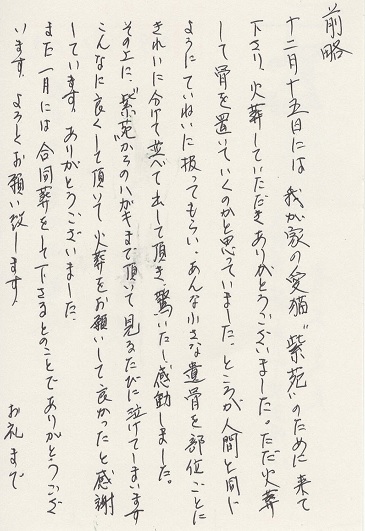 前略
十二月十五日には我が家の愛猫"紫苑"のために来て
下さり、火葬していただきありがとうございました。ただ火葬
して骨を置いていくのかと思っていました。ところが人間と同じ
ようにていねいに扱ってもらい、あんな小さな遺骨を部位ごとに
きれいに分けて並べて出して頂き、驚いたし感動しました。
その上に、"紫苑"からのハガキまで頂いて見るたびに泣けてしまいます
こんなに良くして頂いて火葬をお願いして良かったと感謝
しています。ありがとうございました。
また一月には合同葬をして下さるとのことでありがとうござ
います。よろしくお願い致します。
お礼まで